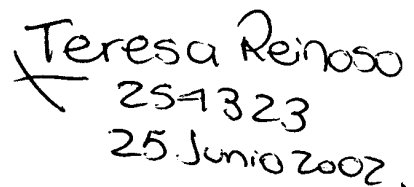 Teresa Reinoso
254323
25 Junio 2002.